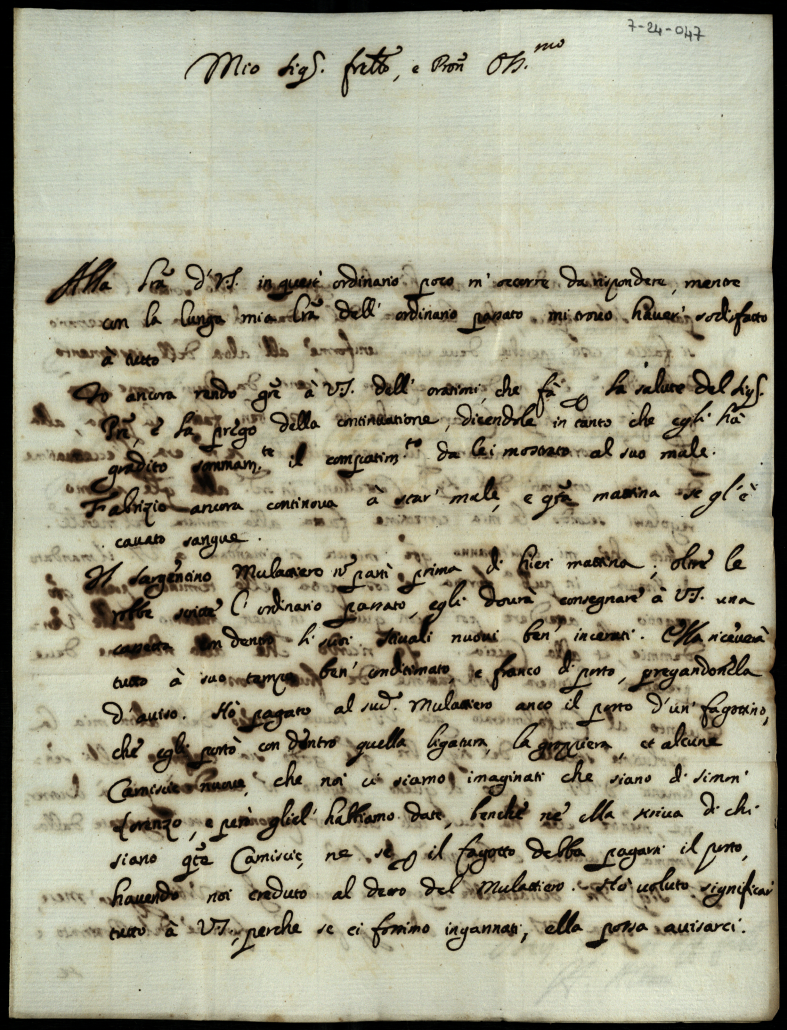 7-24-047
Mio Sig.r fratello, e Pron Oss.mo
Alla lra d'V.S. in questo ordinario poco m'occorre da rispondere, mentre
con la lunga mia lra dell' ordinario passato mi trovo haver' sodisfatto
à tutto.
Io ancora rendo gre à V.S. dell' orationi, che fà p la salute del Sig.r
Pre, e la prego della continuatione, dicendole in tanto che egli hà
gradito sommam.te il compatim.to da lei mostrato al suo male.
Fabrizio ancora continova à star' male, e qta mattina se gl'è
cavato sangue.
Il Sargentino Mulattiero nō partì prima di hieri mattina; oltre le
robbe scritte l'ordinario passato, egli dovrà consegnare à V.S. una
con dentro li suoi stivali nuovi ben' incerati. Ella riceverà
tutto à suo tempo ben' conditionato, e franco di porto, pregandonela
d'aviso. Hò pagato al sud.o Mulattiero anco il porto d'un' fagottino,
che egli portò con dentro quella ligatura, la et alcune
Camiscie nuove, che noi ci siamo imaginati che siano di simon'
Lorenzo, e però gliel' habbiamo date, benche ne ella scriva di chi
siano qte Camiscie, ne se p il fagotto debba pagarsi il porto,
havendo noi creduto al detto del Mulattiero. Hò voluto significar
tutto à V.S., perche se ci fossimo ingannati, ella possa avisarci.